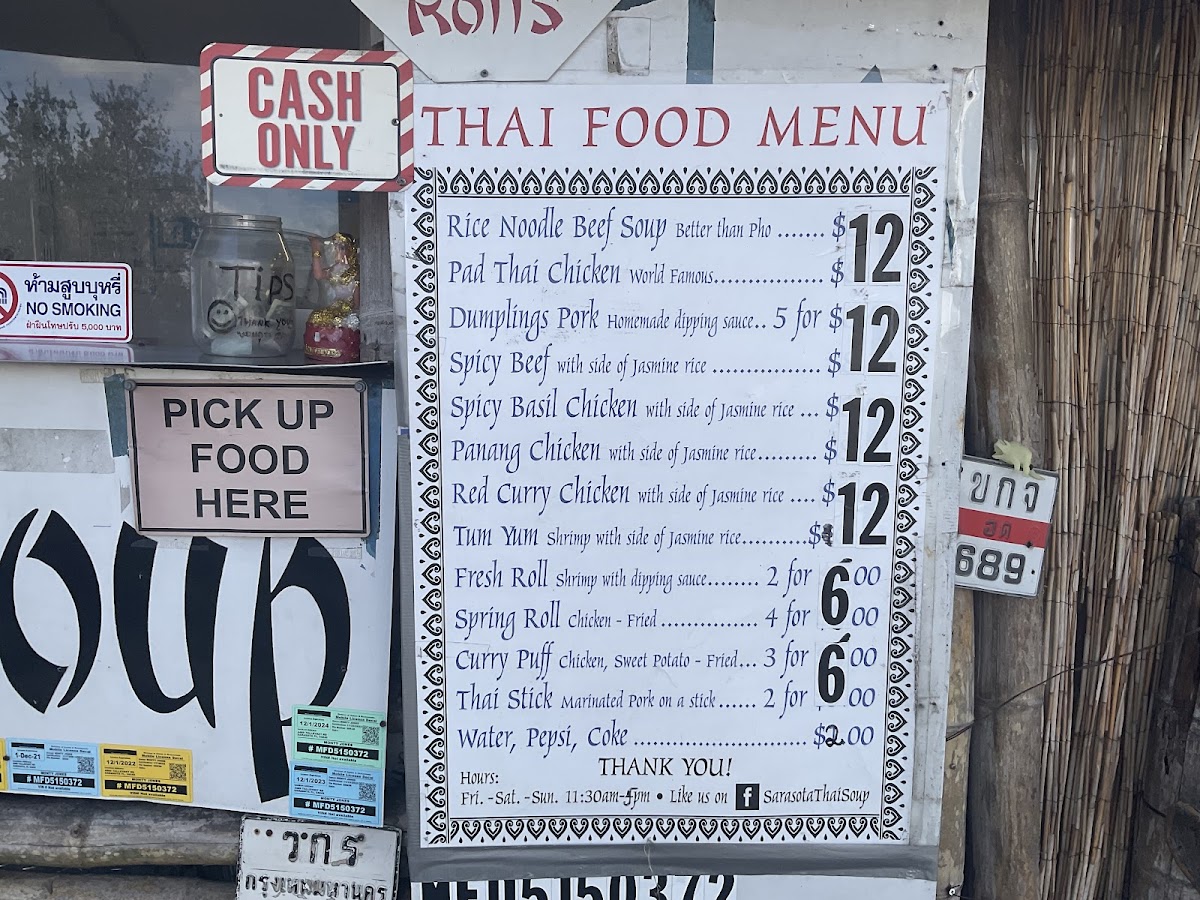 Rolls
CASH
ONLY
THAI FOOD MENU
Rice Noodle Beef Soup Better than Pho ....... $
12
Pad Thai Chicken World Famous................. $
Dumplings Pork Homemade dipping sauce.. 5 for $
12
Spicy Beef with side of Jasmine rice ................. $
Spicy Basil Chicken with side of Jasmine rice ... $
12
Panang Chicken with side of Jasmine rice......... $
Red Curry Chicken with side of Jasmine rice .... $
12
Tum Yum Shrimp with side of Jasmine rice..........$
Fresh Roll Shrimp with dipping sauce........ 2 for 6.00
Spring Roll Chicken - Fried ............... 4 for .00
Curry Puff Chicken, Sweet Potato - Fried... 3 for 6.00
Thai Stick Marinated Pork on a stick...... 2 for .00
Water, Pepsi, Coke ............................... $2.00
THANK YOU!
Hours:
Fri. -Sat. -Sun. 11:30am-5pm • Like us on f SarasotaThaiSoup
TIPS
THANK YOU
ห้ามสูบบุหรี่
NO SMOKING
ฝ่าฝืนโทษปรับ 5,000 บาท
PICK UP
FOOD
HERE
oup
1-Dec-21
# MFD5150372
12/1/2022
# MFD5150372
12/1/2024
MONTY JONES
# MFD5150372
12/1/2023
# MFD5150372
ขกจ
689
วกร
กรุงเทพมหานคร
MFD5150372